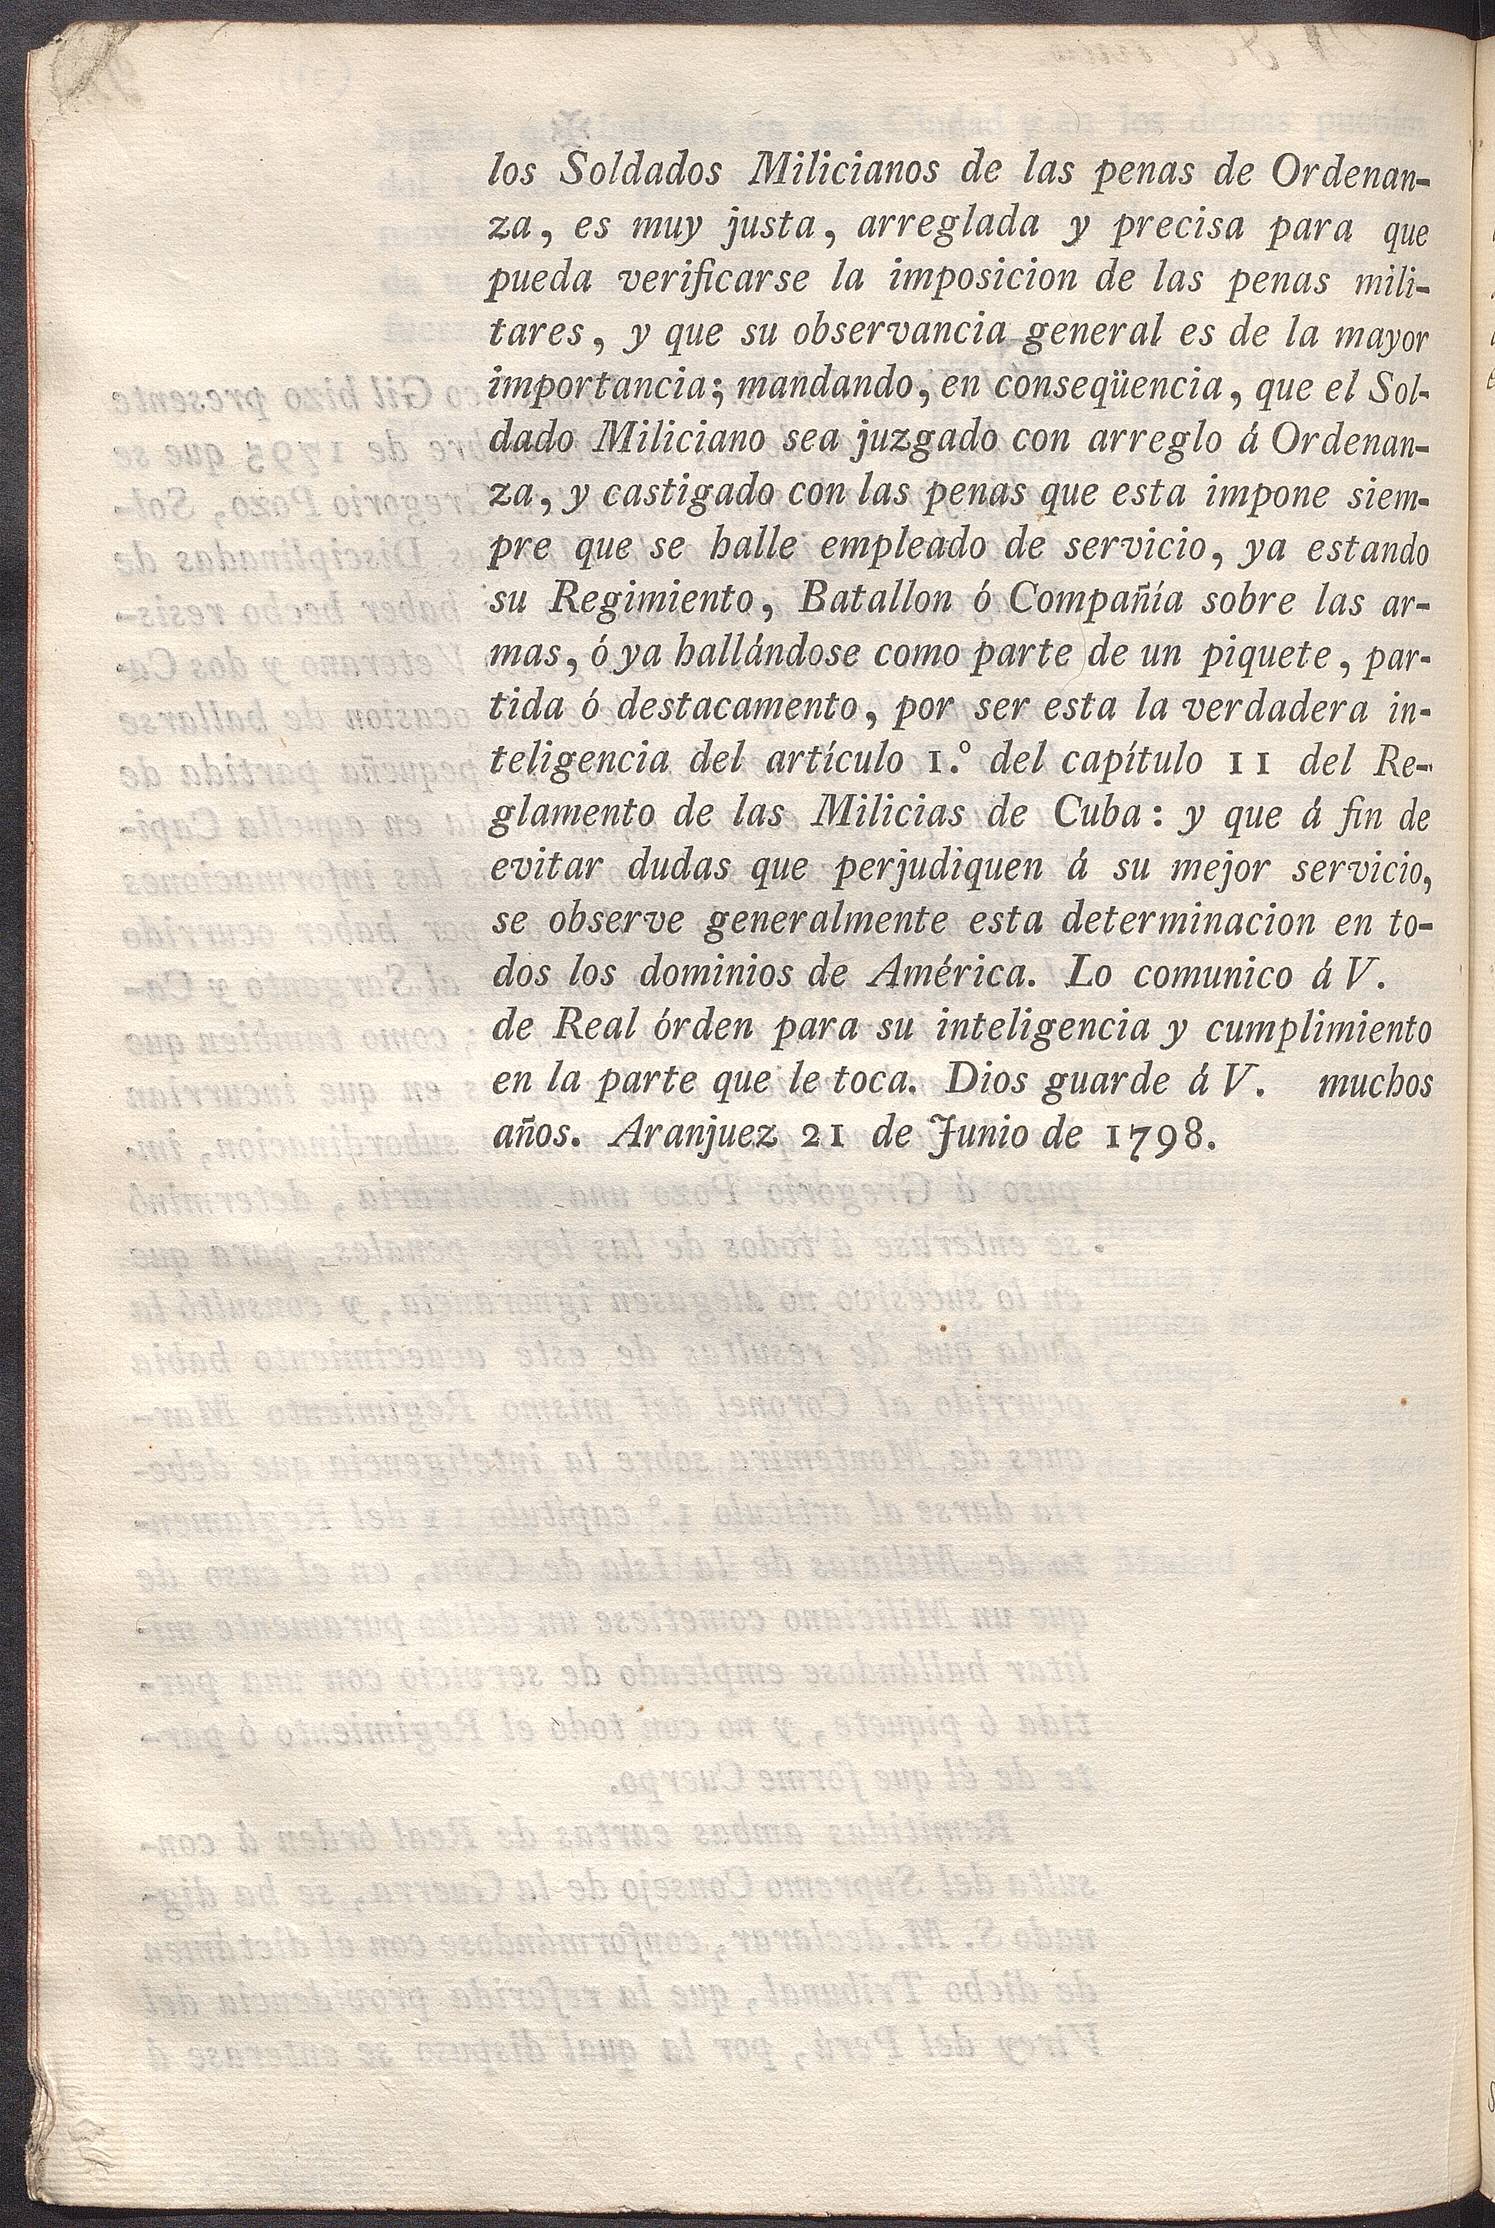 los Soldados Milicianos de las penas de Ordenan-
za, es muy justa, arreglada y precisa para que
pueda verificarse la imposicion de las penas mili-
tares, y que su observancia general es de la mayor
importancia; mandando, en conseqüencia, que el Sol-
dado Miliciano sea juzgado con arreglo á Ordenan-
za, y castigado con las penas que esta impone siem-
pre que se halle empleado de servicio, ya estando
su Regimiento, Batallon ó Compañía sobre las ar-
mas, ó ya hallándose como parte de un piquete, par-
tida ó destacamento, por ser esta la verdadera in-
teligencia del artículo 1.º del capítulo 11 del Re-
glamento de las Milicias de Cuba: y que á fin de
evitar dudas que perjudiquen á su mejor servicio,
se observe generalmente esta determinacion en to-
dos los dominios de América. Lo comunico á V.
de Real órden para su inteligencia y cumplimiento
en la parte que le toca. Dios guarde á V. muchos
años. Aranjuez 21 de Junio de 1798.